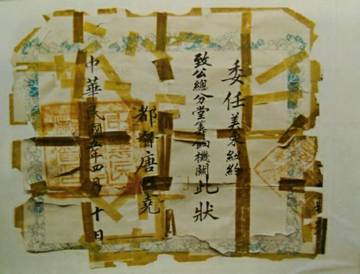 委任美紐約
致公總分堂籌餉機關此狀
都督唐堯
中華民國五年四月十日